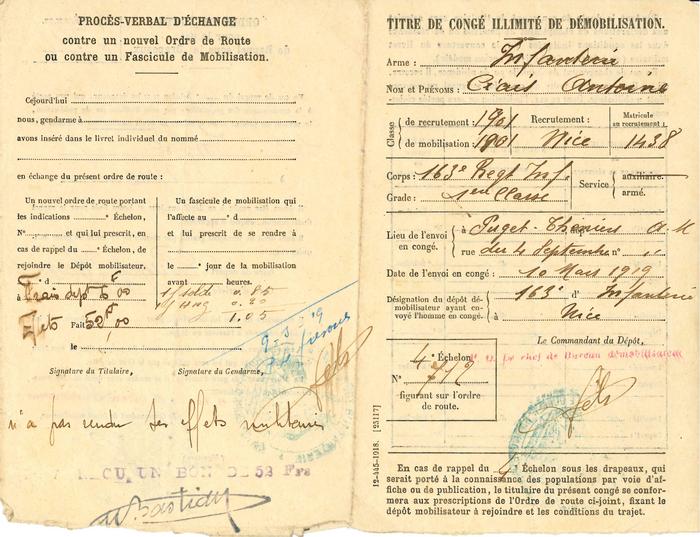 PROCÈS-VERBAL D'ÉCHANGE
contre un nouvel Ordre de Route
ou contre un Fascicule de Mobilisation.
Cejourd'hui
nous, gendarme à
avons inséré dans le livret individuel du nommé
en échange du présent ordre de route :
Un nouvel ordre de route portant
les indications ° Échelon,
N° et qui lui prescrit, en
cas de rappel du ° Échelon, de
rejoindre le Dépôt mobilisateur.
d
Frais dept 6F00
Effets Fait 52F,00
le
Un fascicule de mobilisation qui
l'affecte au ° d
et lui prescrit de se rendre à
le ° jour de la mobilisation
avant heures.
0.85
0.20
1.05
Signature du Titulaire,
Signature du Gendarme,
n'a pas rendu ses effets militaires
REÇU UN BON DE 52 Frs
TITRE DE CONGÉ ILLIMITÉ DE DÉMOBILISATION.
Arme : Infanterie
NOM ET PRÉNOMS : Ciais Antoine
Classe de recrutement : 1901
de mobilisation : 1901
Recrutement :
Nice
Matricule
au recrutement :
1438
Corps : 163e Regt Inf.
Grade : Classe
Service auxiliaire.
armé.
Lieu de l'envoi en congé. à Puget-Théniers A. M
rue du 4 Septembre n° "
Date de l'envoi en congé : 10 Mars 1919
Désignation du dépôt démobilisateur ayant envoyé l'homme en congé. 163e d'Infanterie
à Nice
Le Commandant du Dépôt,
P. O. le chef de Bureau démobilisateur
4e Échelon
N° 712
figurant sur l'ordre
de route.
12-445-1918. [25117]
En cas de rappel du 4e Échelon sous les drapeaux, qui
serait porté à la connaissance des populations par voie d'af-
fiche ou de publication, le titulaire du présent congé se confor-
mera aux prescriptions de l'Ordre de route ci-joint, fixant le
dépôt mobilisateur à rejoindre et les conditions du trajet.